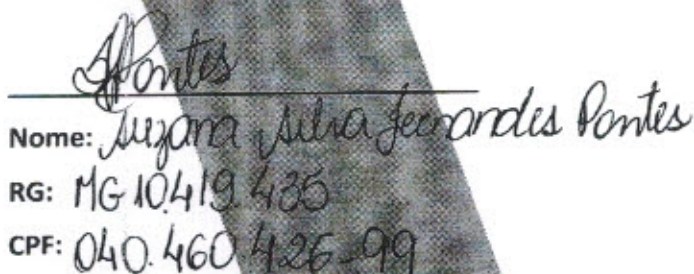 SFPontes
Nome: Suzana Silva Fernandes Pontes
RG: MG 10.419.435
CPF: 040.460.426-99